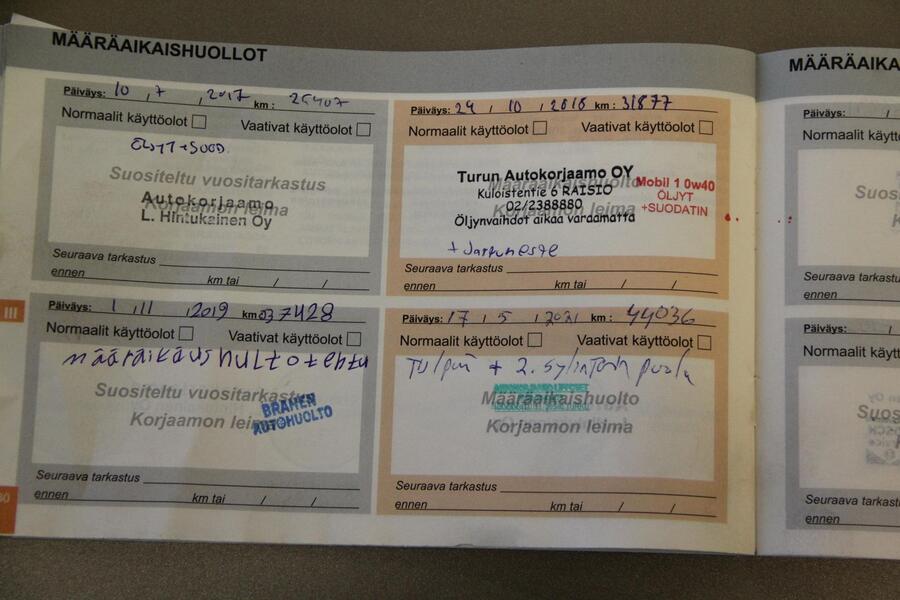 MÄÄRÄAIKAISHUOLLOT
Päiväys: 10 , 7 , 2017 km : 25407
Normaalit käyttöolot
Vaativat käyttöolot
Suositeltu vuositarkastus
Korjaamon leima
Autokorjaamo
L. Hintukainen Oy
Seuraava tarkastus
ennen km tai / /
Päiväys: 24 , 10 , 2018 km : 31877
Normaalit käyttöolot
Vaativat käyttöolot
Määräaikaishuolto
Korjaamon leima
Turun Autokorjaamo OY
Kuloistentie 6 RAISIO
02/2388880
Öljynvaihdot aikaa varaamatta
Mobil 1 0w40
ÖLJYT
+SUODATIN
+ Jarruneste
Seuraava tarkastus
ennen km tai / /
Päiväys: 1 , 11 , 2019 km : 37428
Normaalit käyttöolot
Vaativat käyttöolot
määräikäushultotehtu
Suositeltu vuositarkastus
Korjaamon leima
BRAHEN
AUTOHUOLTO
Seuraava tarkastus
ennen km tai / /
Päiväys: 17 , 5 , 2021 km : 44036
Normaalit käyttöolot
Vaativat käyttöolot
Tulpat + 2. sylinterin puola
Määräaikaishuolto
Korjaamon leima
Seuraava tarkastus
ennen km tai / /
MÄÄRÄAIKA
Päiväys: /
Normaalit käyt
Suos
Ko
Seuraava tarkast
ennen
Päiväys: /
Normaalit käytt
Suos
Ko
Seuraava tarkast
ennen
III